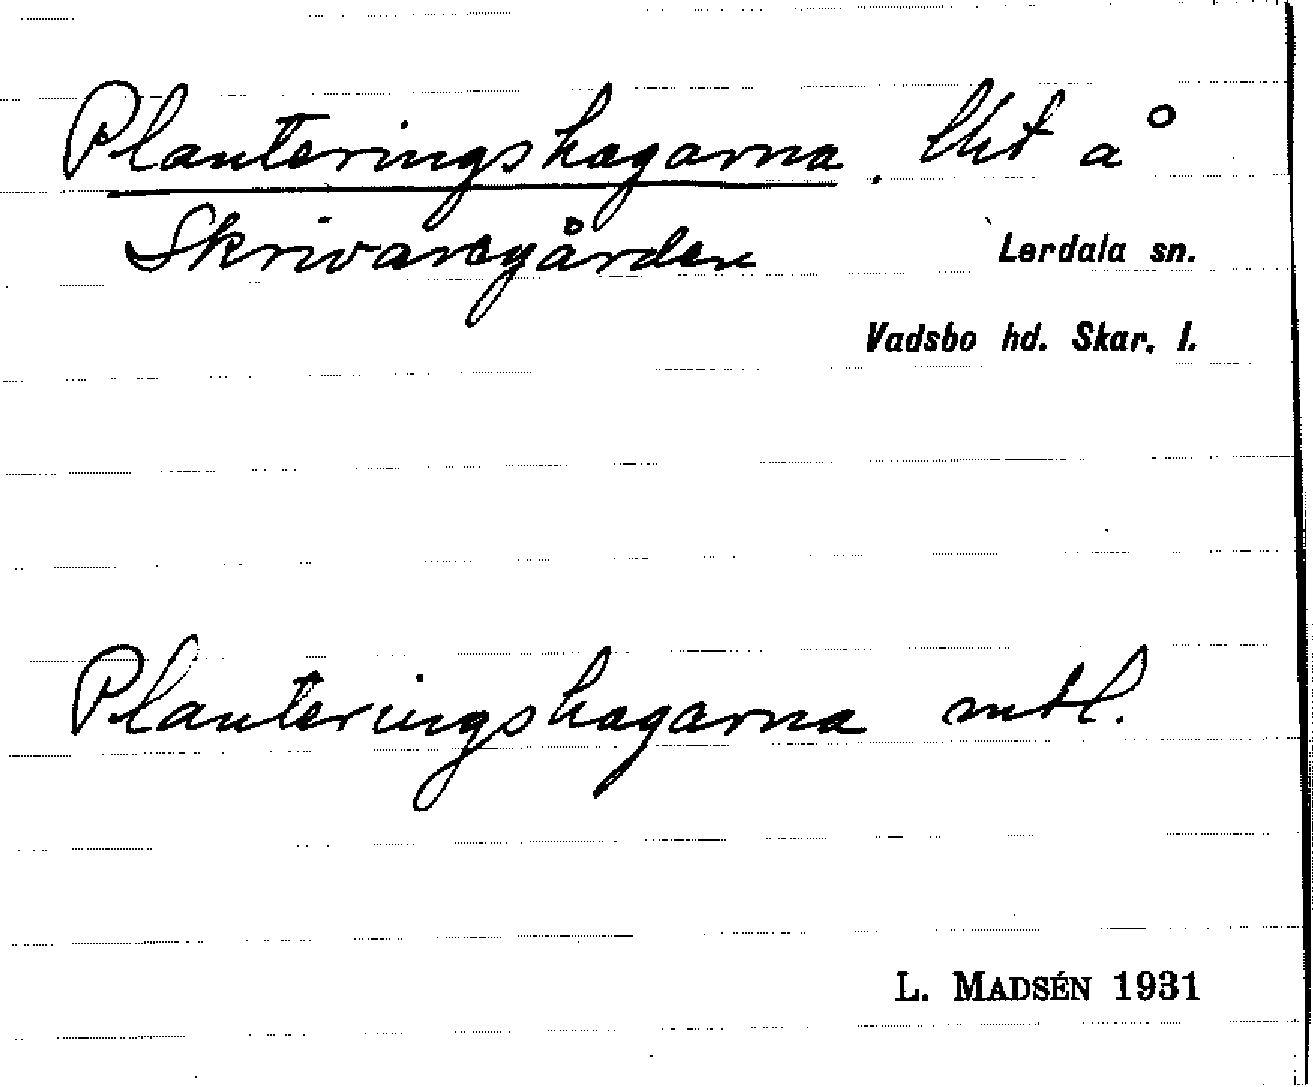 Planteringshagarna. Skt a°
Skrivaregården Lerdala sn.
Vadsbo hd. Skar. l.
Planteringshagarna mtl.
L. MADSÉN 1931